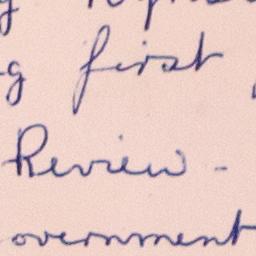 g first
Review -
overnment